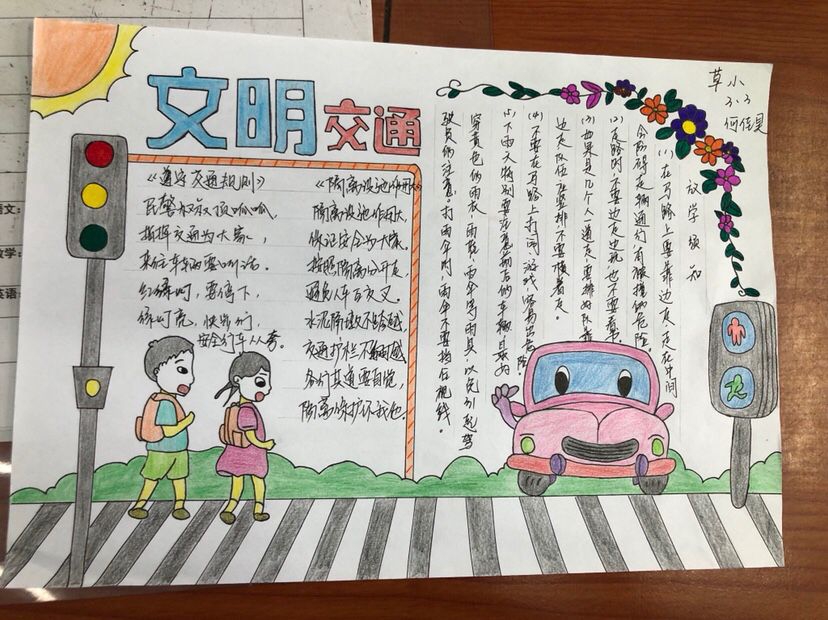 文明交通
草小
3、3
何佳昊
《遵守交通规则》
民警叔叔顶呱呱,
指挥交通为大家,
来往车辆要听话。
红绿灯,要停下,
绿灯亮,快步行,
安全行车人人夸。
《隔离设施作用大》
隔离设施作用大,
保证安全为大家。
按照隔离分开走,
避免人车互交叉。
水泥隔墩不跨越,
交通护栏不翻越
各行其道要自觉,
隔离保护你我他。
放学须知
(1)在马路上要靠边走,走在中间
会防碍走辆通行有被撞的危险。
(2)走路时不要边走边玩也不要看书。
(3)如果是几个人一道走,要排好队靠
边走,队伍应竖排不要横着走。
(4)不要在马路上打闹、游戏,容易出危险。
(5)下雨天特别要注意前后的车辆,最好
穿黄色的雨衣、雨鞋、雨伞等雨具,以免引起驾
驶员的注意。打雨伞时,雨伞不要挡住视线。
语文:
数学:
英语: